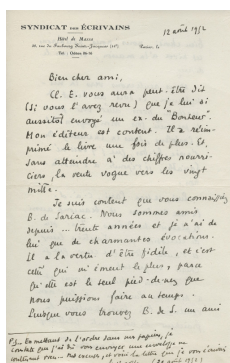 SYNDICAT DES ÉCRIVAINS
Hôtel de Massa
38, rue du Faubourg Saint-Jacques (14e)
Tél. : Odéon
12 août 1952
Bien cher ami,
Cl. E. vous aura peut-être dit
(si vous l'avez revu) que je lui ai
aussitôt envoyé un ex. du "Bonheur.
Mon éditeur est content. Il a réim-
primé le livre une fois de plus. Et,
sans atteindre à des chiffres nourri-
ciers, la vente vogue vers les vingt
mille.
Je suis content que vous connaissiez
E. de Sariac. Nous sommes amis
depuis ... trente années et je n'ai de
lui que de charmantes évocations.
Il a la vertu d'être fidèle, et c'est
celle qui m'émeut le plus, parce
qu'elle est le seul pied-de-nez que
nous puissions faire au temps.
Lorsque vous trouvez E. de S. un ami
P.S. En mettant de l'ordre dans mes papiers, je
constate que j'ai dû vous envoyer une enveloppe ne
contenant rien... et voici la lettre que je vous